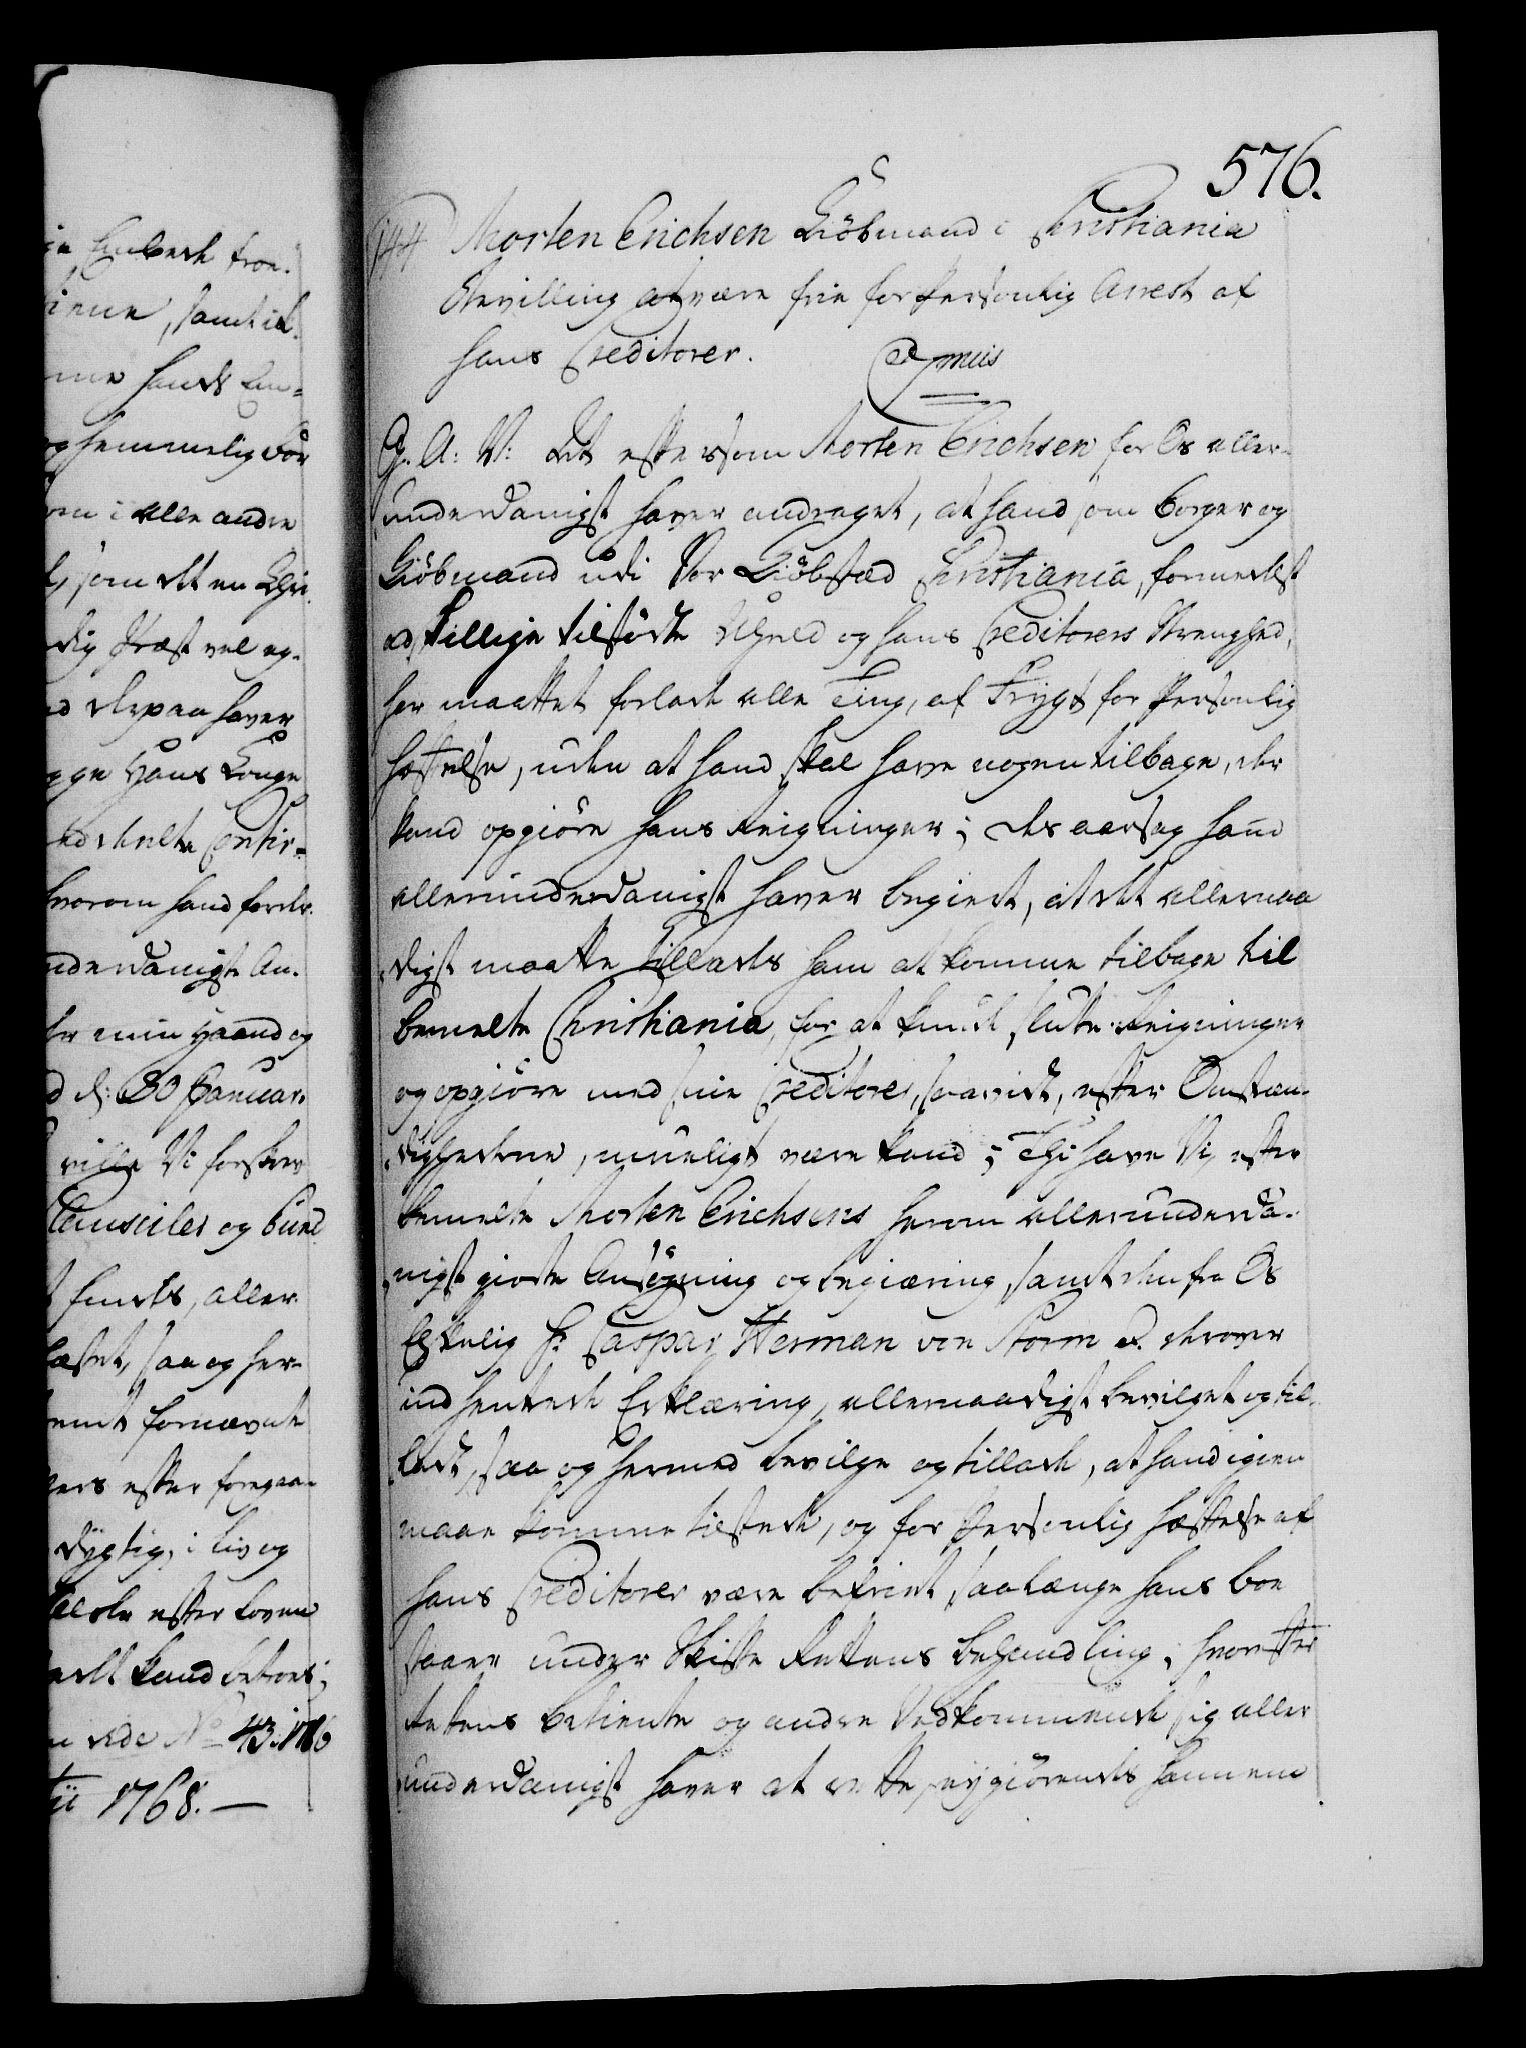 576.
144 Morten Erichsen Kiöbmand i Christiania
Bevilling at være frie for Personlig Arrest af
hans Creditorer.
Gratis
G. A: V: At eftersom Morten Erichsen for Os aller-
underdanigst haver andraget, at hand som Borger og
Kiöbmand udi Vor Kiöbstæd Christiania, formedelst
ad Skillige tilstödte Uheld og hans Creditorers Strenghed,
har maattet forlade alle Ting, af Frygt for Personlig
Hæftelse, uden at hand skal have nogen tilbage, der
kand opgiöre hans Reigninger; des aarsag hand
allerunderdanigst haver begiert, at det allernaa
digst maatte tillades ham at komme tilbage til
bemelte Christiania, for at kunde slutte Reigninger
og opgiöre med sine Creditorer, saavidt, efter Omstæn-
dighederne, mueligt være kand; Thi have Vi, efter
bemelte Morten Erichsens herom allerunderda-
nigst giorte Ansögning og begiæring, samt den fra Os
Elskelig Hr. Caspar Herman von Storm derover
indhentede Erklæring, allernaadigst bevilget og til-
ladt, saa og hermed bevilge og tillade, at hand igien
maae komme tilstede, og for Personlig Hæftelse af
hans Creditorer være befriet, saalænge hans boe
staaer under Skifte Rettens behandling; hvorefter
Rettens Betiente og andre Vedkommende sig aller
underdanigst haver at rette, ey giörendes hannem
ie Embede troe-
iene, samt i al
me hands Em-
og hemmelig bör
om i alle andre
som det en Chri
dig Præst vel eg-
d derpaa haver
gge Hans Konge
ed meldte Confir-
hvorom hand forde.
nderdanigste An-
er min Haand og
d d: 30 Januar.
ville Vi forskrev
Clausuler og Bund
t findes, aller-
æstet, saa og her-
emt fornævnte
ers efter foregaa-
dygtig, i Liv og
Række efter Loven
edelt kand betroes;
n vide No 43. 176
ii 1768.